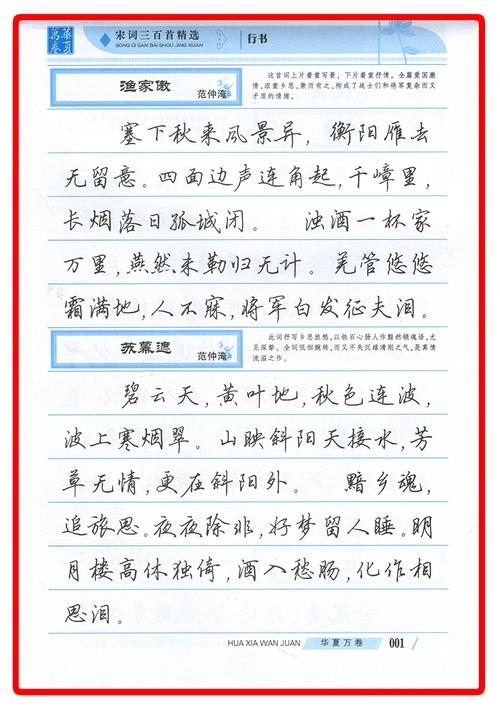 华夏万卷
宋词三百首精选
SONG CI SAN BAI SHOU JING XUAN
行书
渔家傲
范仲淹
这首词上片着重写景，下片着重抒情。全篇爱国激
情，浓重乡思，兼而有之，构成了战士们和将军复杂而又
矛盾的情绪。
塞下秋来风景异，衡阳雁去
无留意。四面边声连角起，千嶂里，
长烟落日孤城闭。 浊酒一杯家
万里，燕然未勒归无计。羌管悠悠
霜满地，人不寐，将军白发征夫泪。
苏幕遮
范仲淹
此词抒写乡思旅愁，以铁石心肠人作黯然销魂语，尤
见深挚。全词低徊婉转，而又不失沉雄清刚之气，是真情
流溢之作。
碧云天，黄叶地，秋色连波，
波上寒烟翠。山映斜阳天接水，芳
草无情，更在斜阳外。 黯乡魂，
追旅思。夜夜除非，好梦留人睡。明
月楼高休独倚，酒入愁肠，化作相
思泪。
HUA XIA WAN JUAN
华夏万卷
001